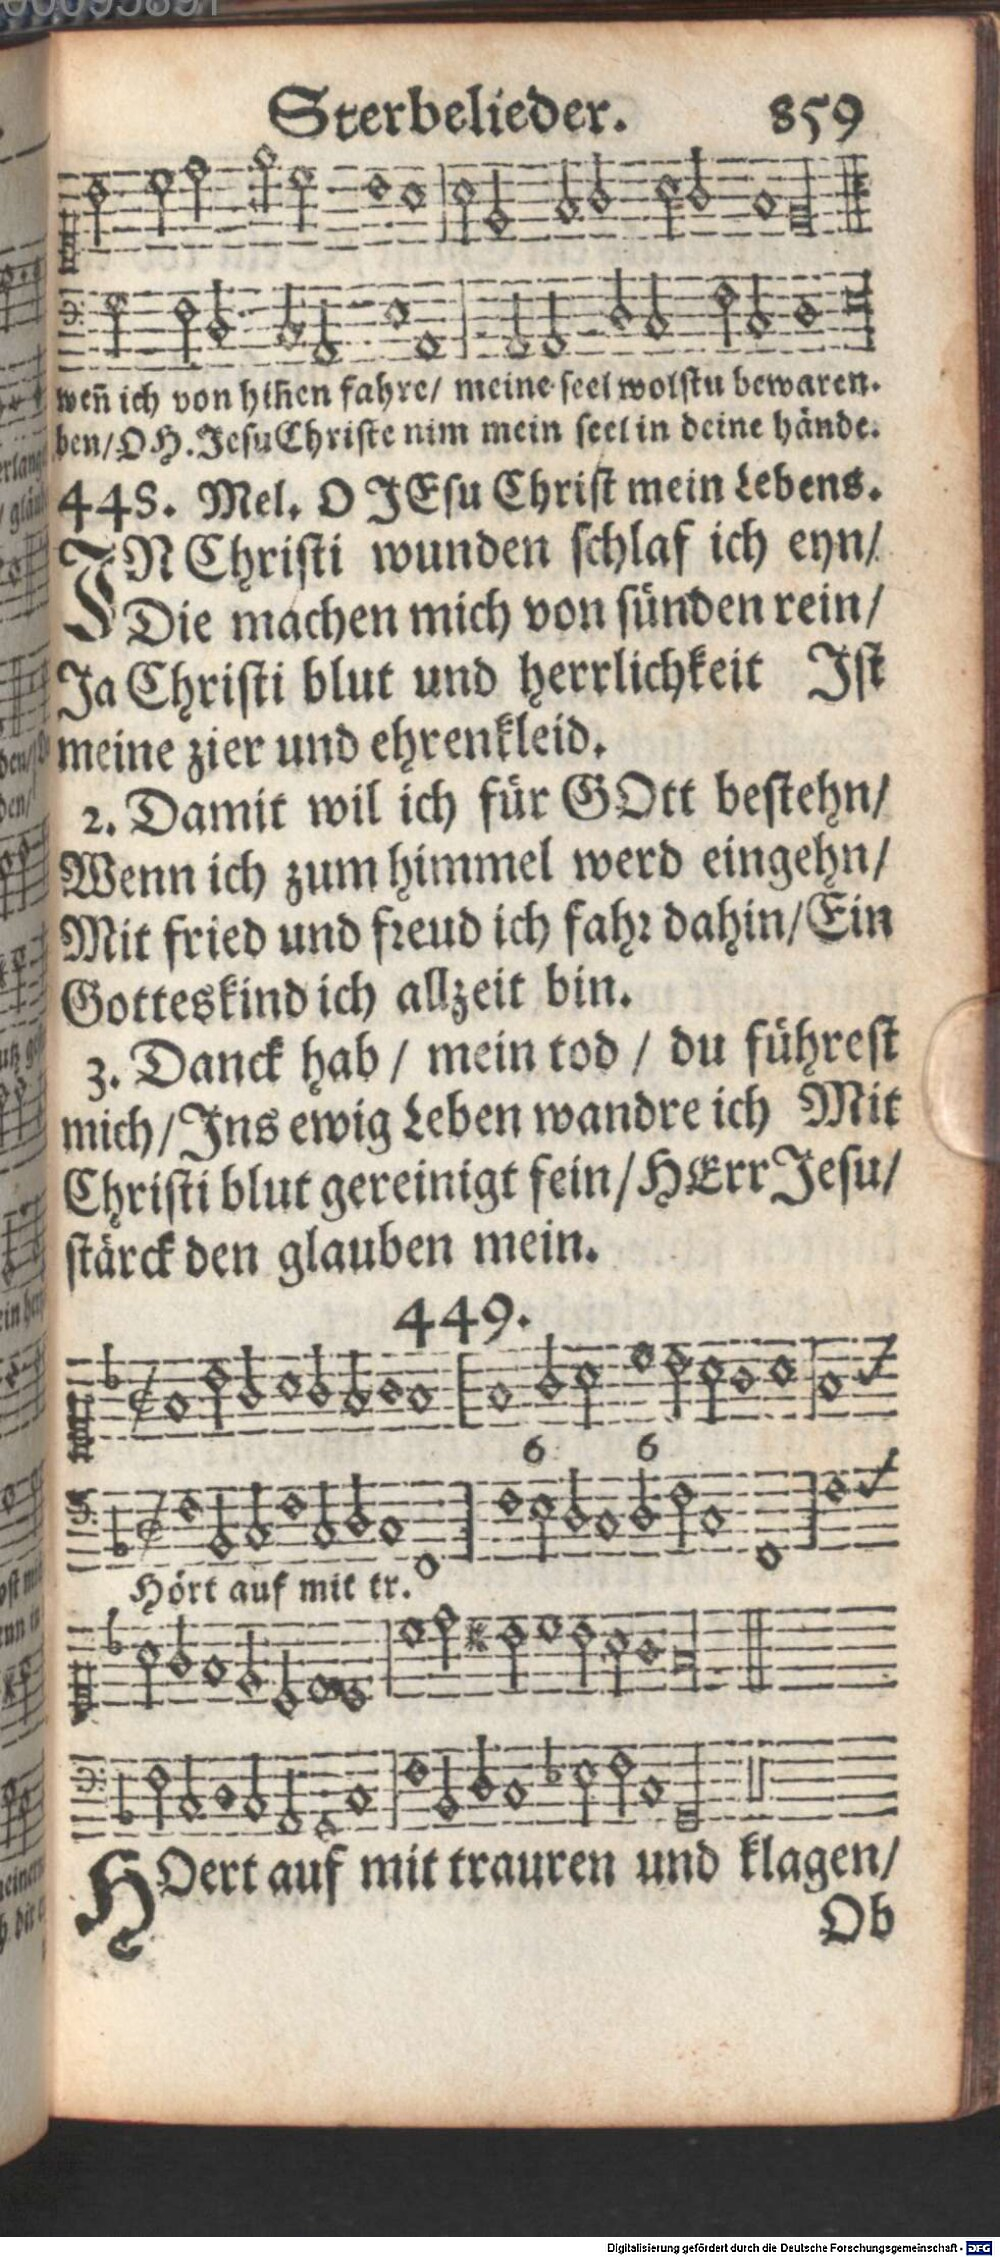 Sterbelieder. 859
weñ ich von hiñen fahre/ meine seel wolstu bewaren.
ben/O H. Jesu Christe nim mein seel in deine hände.
448. Mel. O JEsu Christ mein Lebens.
IN Christi wunden schlaf ich eyn/
Die machen mich von sünden rein/
Ja Christi blut und herrlichkeit Ist
meine zier und ehrenkleid.
2. Damit wil ich für GOtt bestehn/
Wenn ich zum himmel werd eingehn/
Mit fried und freud ich fahr dahin/Ein
Gotteskind ich allzeit bin.
3. Danck hab / mein tod / du führest
mich/Ins ewig Leben wandre ich Mit
Christi blut gereinigt fein/HErr Jesu/
stärck den glauben mein.
449.
6 6
Hört auf mit tr.
HOert auf mit trauren und klagen/
Ob
Digitalisierung gefördert durch die Deutsche Forschungsgemeinschaft - DFG